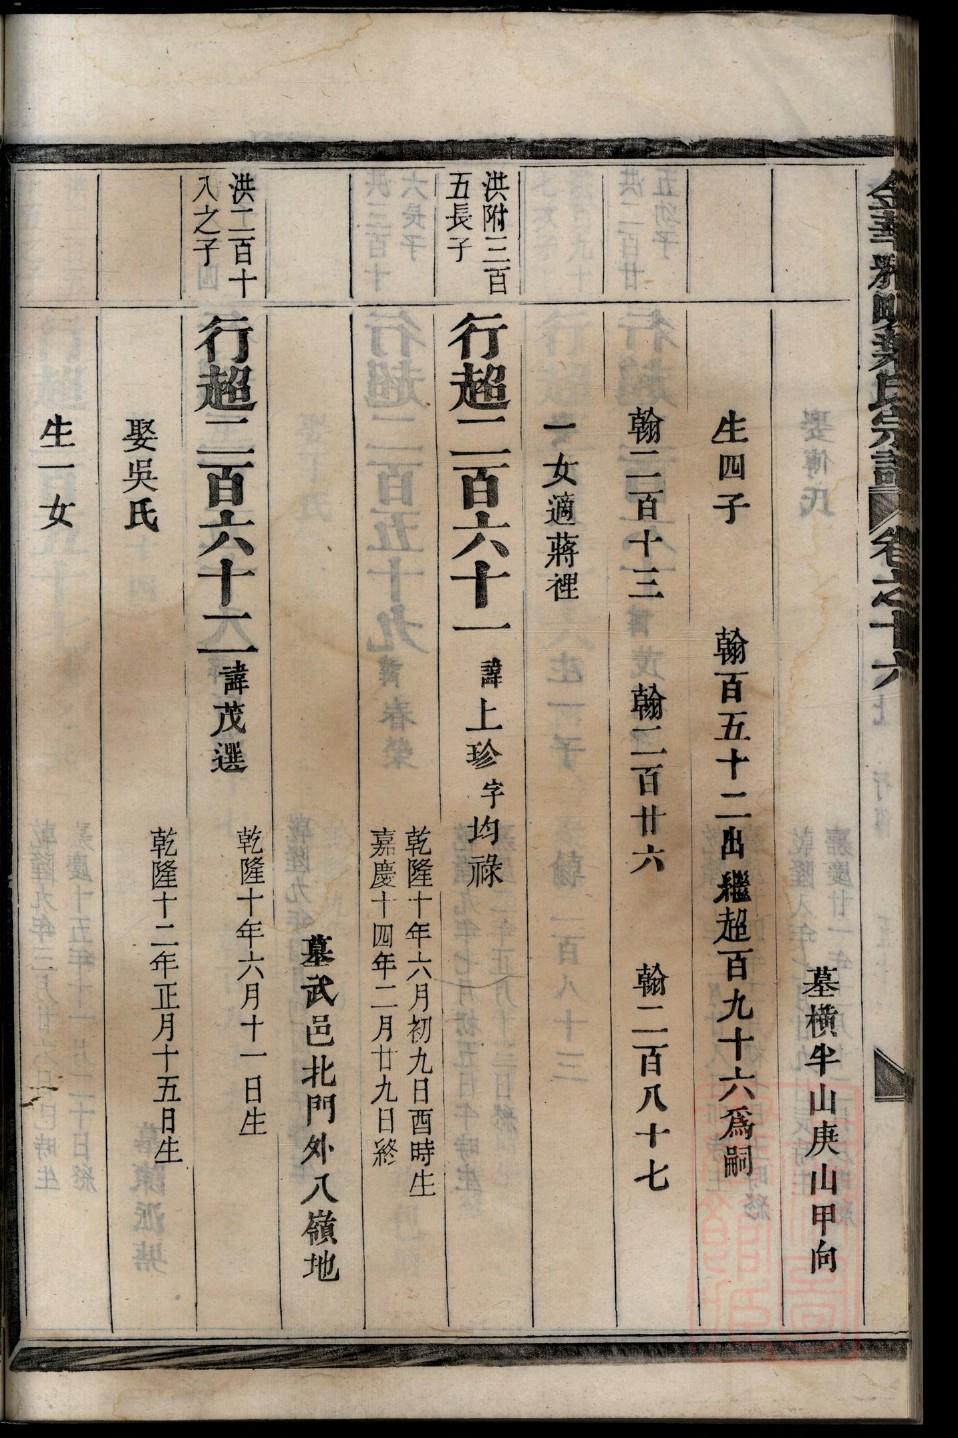 墓橫牛山庚山甲向
生四子 翰百五十二出繼超百九十六爲嗣
翰二百十三 翰二百廿六 翰二百八十七
一女適蔣裡
洪附三百
五長子
行超二百六十一 諱上珍字均祿
乾隆十年六月初九日酉時生
嘉慶十四年二月廿九日終
墓武邑北門外八嶺地
洪二百十
八之子
行超二百六十二 諱茂選
乾隆十年六月十一日生
娶吳氏
乾隆十二年正月十五日生
生一女